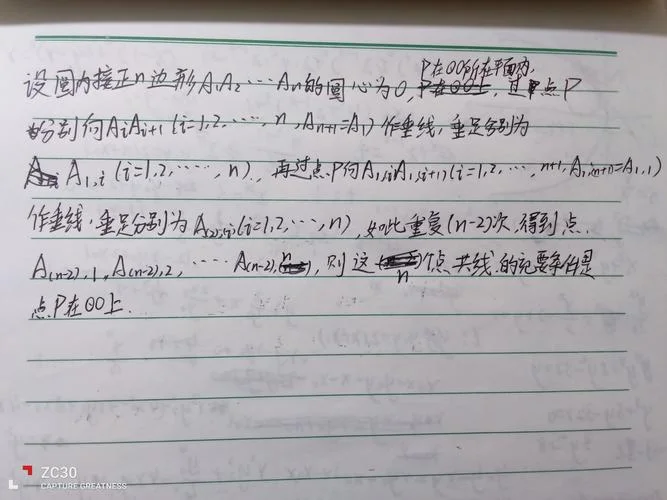 P在⊙O所在平面内,
设圆内接正n边形A₁A₂……Aₙ的圆心为O, 过点P
分别向AᵢAᵢ₊₁(i=1,2,……,n,Aₙ₊₁=A₁)作垂线,垂足分别为
A₁,ᵢ(i=1,2,……,n).再过点P向A₁,ᵢA₁,ᵢ₊₁(i=1,2,…,n+1,A₁,ₙ₊₁=A₁,₁)
作垂线.垂足分别为A₍₂₎,ᵢ(i=1,2,…,n),如此重复(n-2)次,得到点.
A₍ₙ₋₂₎,₁,A₍ₙ₋₂₎,₂,……A₍ₙ₋₂₎,ₙ,则这n个点共线的充要条件是
点P在⊙O上.
ZC30
CAPTURE GREATNESS